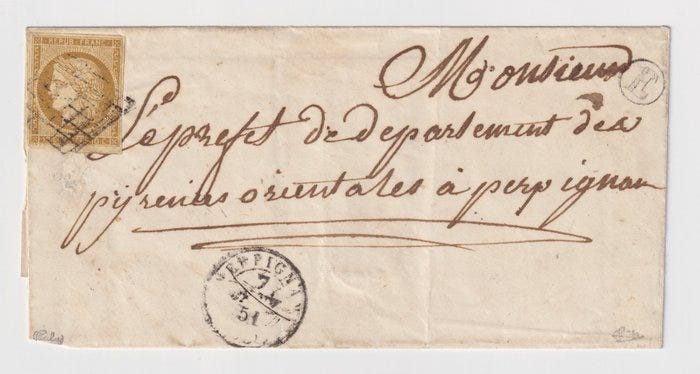 REPUB·FRANC
Monsieur
Le prefet de departement des
pyrenies orientales à perpignan
PERPIGNAN
7
51